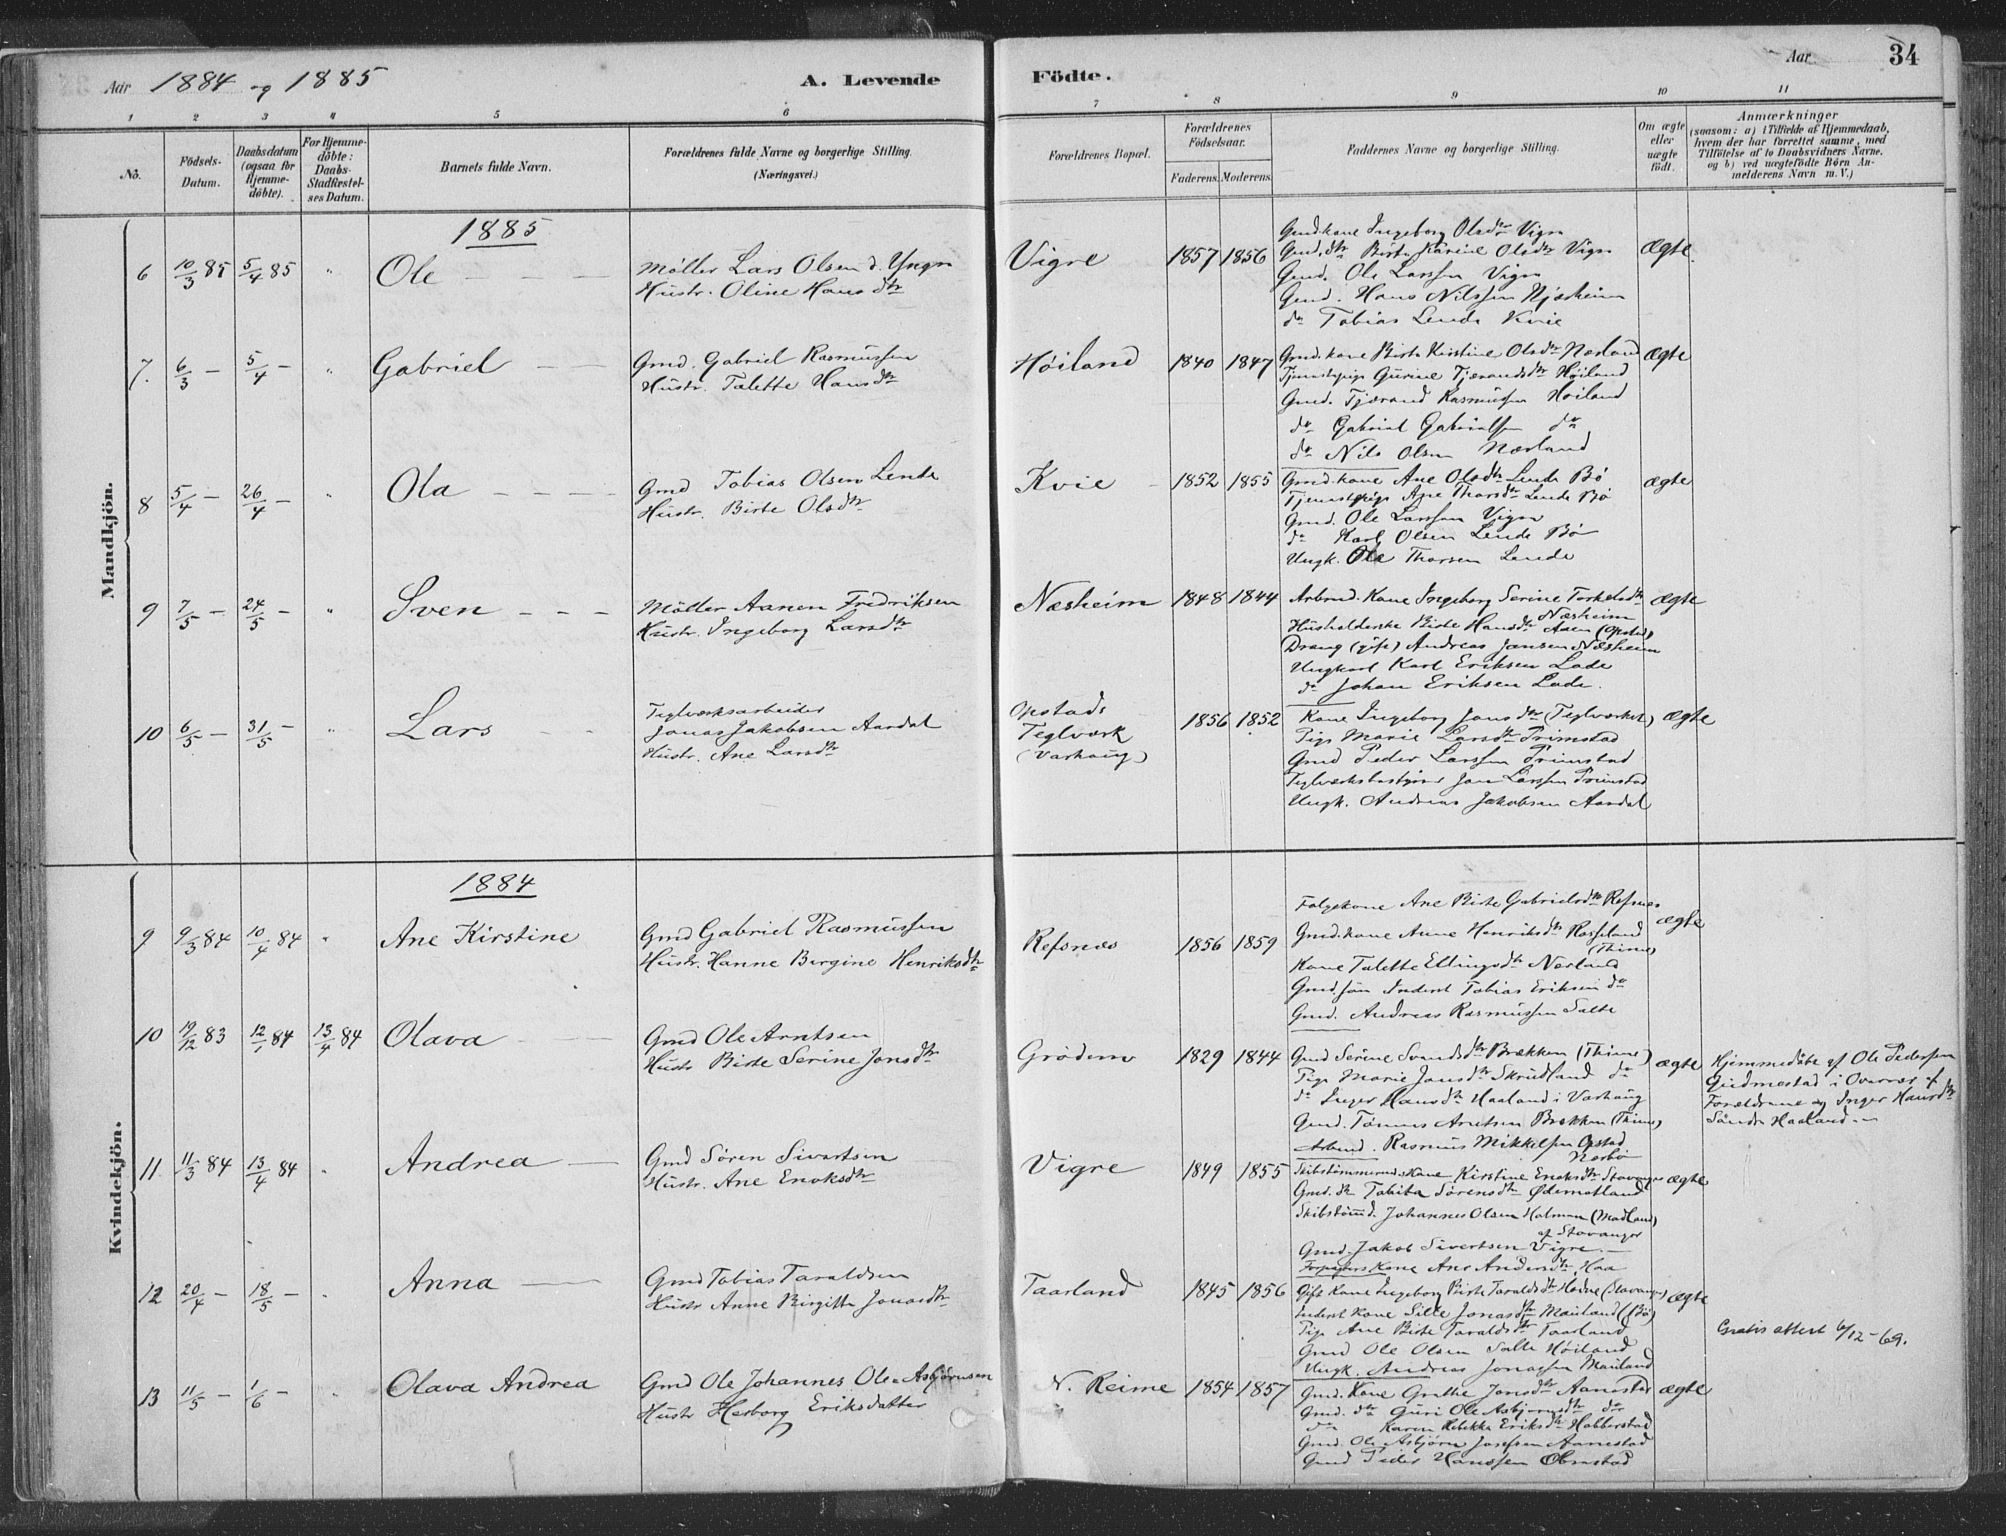 Aar 1884 og 1885 A. Levende Födte. Aar 34
1 2 3 4 5 6 7 8 9 10 11
No. Födsels-Datum. Daabsdatum (ogsaa for Hjemmedöbte). For Hjemmedöbte: Daabs-Stadfæstelses Datum. Barnets fulde Navn. Forældrenes fulde Navne og borgerlige Stilling. (Næringsvei.) Forældrenes Bopæl. Forældrenes Födselsaar. Faderens. Moderens. Faddernes Navne og borgerlige Stilling. Om ægte eller uægte födt. Anmærkninger (saasom: a) i Tilfælde af Hjemmedaab, hvem der har forrettet samme, med Tilföielse af to Daabsvidners Navne, og b) ved uægtefödte Börn Anmelderens Navn m. V.)
Mandkjön.
1885
6 10/3 85 5/4 85 " Ole Møller Lars Olsen
Hustr. Oline Hansdtr
Vigre 1857 1856 ægte.
Gmdkone Ingeborg Olsdtr Vigre
Gmd. dtr Birte Karine Olsdtr Vigre
Gmd. Ole Larssen Vigre
Gmd. Hans Nilssen Njæsheim
do Tobias Lende Kvie
7. 6/3 — 5/4 — " Gabriel Gmd. Gabriel Rasmussen
Hustr. Talette Hansdtr
Høiland 1840 1847 ægte
Gmd. kone Birte Kirstine Olsdtr Nærland
Tjenestepige Gurine Tjærandsdtr Høiland
Gmd. Tjærand Rasmussen Høiland
do Gabriel Gabrielsen do
do Nils Olsen Nærland
8 5/4 — 26/4 — " Ola Gmd Tobias Olsen Lende
Hustr. Birte Olsdtr
Kvie 1852 1855 ægte
Gmd. kone Ane Olsdtr Lende Bø
Tjenstepige Ane Thorsdtr Lende Bø
Gmd. Ole Larssen Vigre
do Karl Olsen Lende Bø
Ungk. Ole Thorsen Lende
9 7/5 — 24/5 — " Sven Møller Aanen Fredriksen
Hustr. Ingeborg Larsdtr
Næsheim 1848 1844 ægte
Arbmd. Kone Ingeborg Serine Torkelsdtr
Næsheim
Husholderske Birte Hansdtr Aaen (Opstad)
Dreng (gift) Andreas Jansen Næsheim
Ungkarl Karl Eriksen Lode
do Johan Eriksen Lode.
10 6/5 — 31/5 — " Lars Teglværksarbeider
Jonas Jakobsen Aardal
Hustr. Ane Larsdtr
Opstads
Teglværk
(Varhaug)
1856 1852 ægte
Kone Ingeborg Jonsdtr (Teglværket)
Pige Marie Larsdtr Primstad
Gmd Peder Larssen Primstad
Teglværksbestyrer Jon Larssen Primstad
Ungk. Andreas Jakobsen Aardal
Kvindekjön.
1884
9 9/3 84 10/4 84 " Ane Kirstine Gmd Gabriel Rasmussen
Hustr. Hanne Bergine Henriksdtr
Refsnes 1856 1859 ægte
Følgekone Ane Birte Gabrielsdtr Refsnes
Gmd. kone Anne Henriksdtr Rosseland
(Thime)
Kone Talette Ellingsdtr Nærland
Gmd. søn Inderst Tobias Eriksen do
Gmd. Andreas Rasmussen Salte
10 19/12 83 12/1 84 13/4 84 Olava Gmd Ole Arntsen
Hustr Birte Serine Jonsdtr
Grødem 1829 1844 ægte
Gmd Serine Svendsdtr Brækken (Thime)
Pige Marie Jonsdtr Skrudland do
do Inger Hansdtr Haaland i Varhaug
Gmd. Tønnes Arntsen Brækken (Thime)
Arbmd. Rasmus Mikkelsen Opstad
Nærbø
Hjemmedøbt af Ole Pedersen
Gudmestad i Overvær af
Forældrene og Inger Hansdtr
Søndre Haaland.
11 11/3 84 13/4 84 " Andrea Gmd Søren Sivertsen
Hustr. Ane Enoksdtr
Vigre 1849 1855 ægte
Skibstømmermds. Kone Kirstine Enoksdtr Stavanger
Gmd. dtr Tabita Sørensdtr Ødemotland
Skibstømd. Johannes Olsen Holman (Madland)
af Stavanger
Gmd. Jakob Sivertsen Vigre.
Forpagters Kone Ane Andersdtr Haa
12 20/4 — 18/5 — " Anna Gmd Tobias Taraldsen
Hustr Anne Birgitte Jonasdtr
Taarland 1845 1856 ægte
Gift Kone Ingeborg Birte Taraldsdtr Hodne (Stavanger)
Inderst Kone Sille Jonasdtr Mauland (Bø)
Pige Ane Birte Taraldsdtr Taarland
Gmd Ole Olsen Salte Høiland
Ungk. Andreas Jonassen Mauland
Gratis attest 6/12-69.
13 11/5 — 1/6 — " Olava Andrea Gmd Ole Johannes Ole-Asbjørnsen
Hustr Herborg Eriksdatter
N. Reime 1854 1857 ægte
Gmd. Kone Grethe Jonsdtr Aanestad
Gmd. dtr Guri Ole Asbjørnsdtr do
do Karen Rebekka Eriksdtr Habberstad
Gmd. Ole Asbjørn Jonssen Aanestad
Gmd Peder Hanssen Obrestad